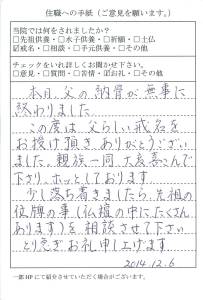 住職への手紙(ご意見を願います。)
当院では何をされましたか?
□先祖供養・□水子供養・□祈願・□土仏
☑戒名・□相談・□手元供養・□その他
チェックをいれ詳しくお聞かせ下さい。
□意見・□質問・□苦情・☑お礼・□その他
本日、父の納骨が無事に
終わりました
この度は父らしい戒名を
お授け頂きありがとうござい
ました。親族一同大変喜んで
下さり、ホッとしております
少し落ち着きましたら、先祖の
位牌の事(仏壇の中にたくさん
あります)を相談させて下さい
とり急ぎお礼申し上げます
2014.12.6
一部HPにて紹介させていただく場合がございます。